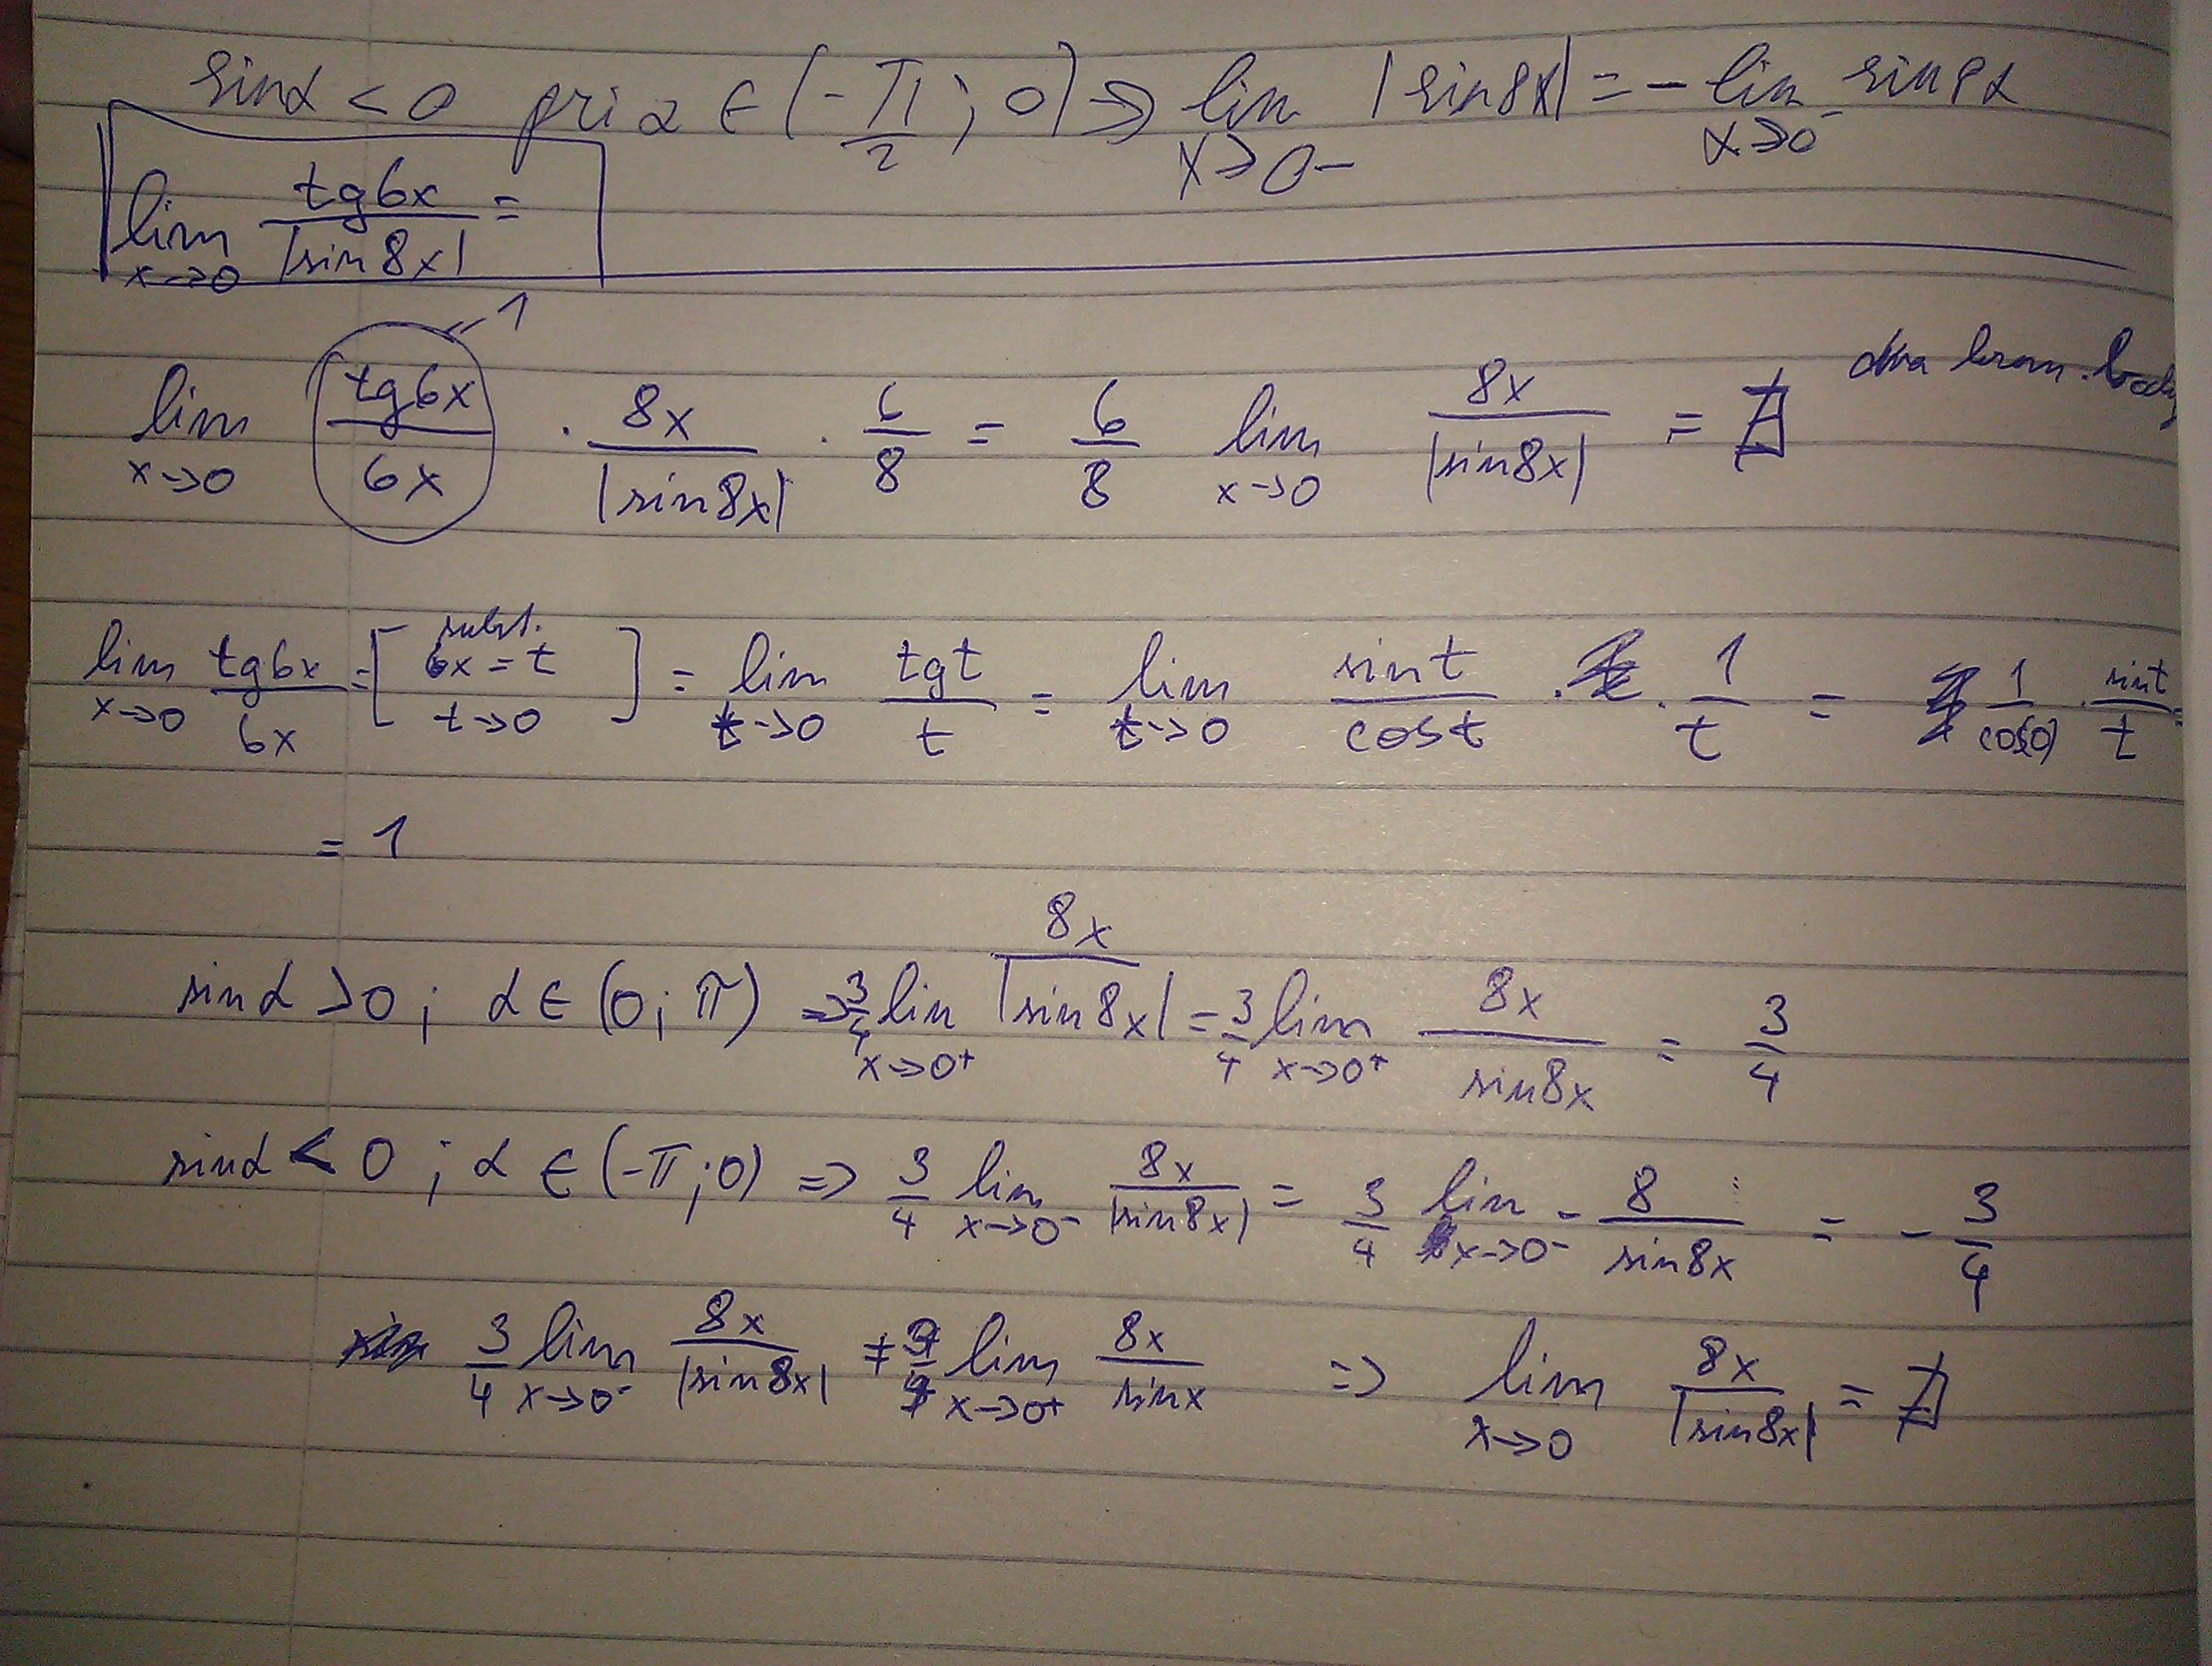 sinα < 0 pri α ∈ (-π/2 ; 0) ⇒ lim x→0- |sin8x| = - lim x→0- sin8α
lim x→0 tg6x/|sin8x| =
lim x→0 tg6x/6x = 1 · 8x/|sin8x| · 6/8 = 6/8 lim x→0 8x/|sin8x| = ∄ dva body
lim x→0 tg6x/6x = [subst. 6x = t t→0] = lim t→0 tgt/t = lim t→0 sint/cost · 1/t = 1/cos(0) · sint/t =
= 1
sinα > 0 ; α ∈ (0 ; π) ⇒ 3/4 lim x→0+ 8x/|sin8x| = 3/4 lim x→0+ 8x/sin8x = 3/4
sinα < 0 ; α ∈ (-π ; 0) ⇒ 3/4 lim x→0- 8x/|sin8x| = 3/4 lim x→0- - 8/sin8x = - 3/4
3/4 lim x→0- 8x/|sin8x| ≠ 3/4 lim x→0+ 8x/sinx ⇒ lim x→0 8x/|sin8x| = ∄